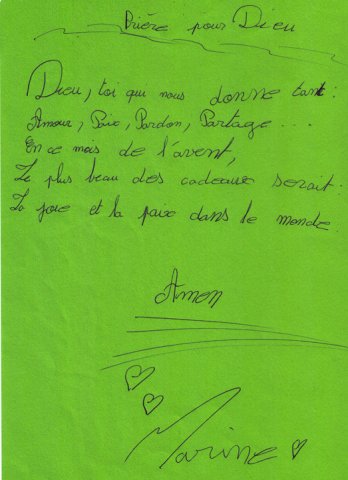 Prière pour Dieu
Dieu, toi qui nous donne tant :
Amour, Paix, Pardon, Partage...
En ce mois de l'avent,
Le plus beau des cadeaux serait :
La joie et la paix dans le monde.
Amen
Marine